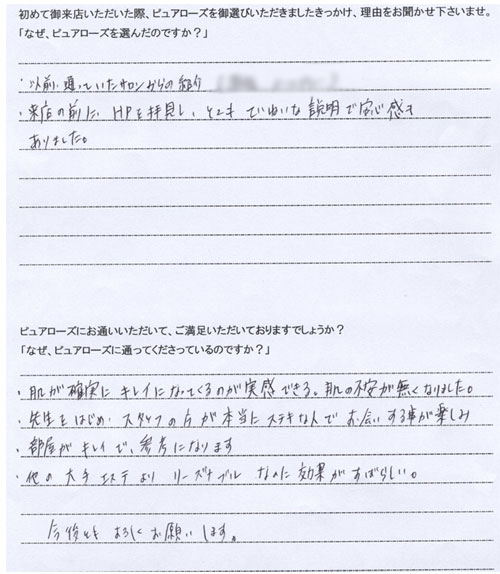 初めて御来店いただいた際、ピュアローズを御選びいただきましたきっかけ、理由をお聞かせ下さいませ。
「なぜ、ピュアローズを選んだのですか？」
・以前、通っていたサロンからの紹介
・来店の前に、HPを拝見し、とてもていねいな説明で安心感も
ありました。
ピュアローズにお通いいただいて、ご満足いただいておりますでしょうか？
「なぜ、ピュアローズに通ってくださっているのですか？」
・肌が確実にキレイになってくるのが実感できる。肌の不安が無くなりました。
・先生をはじめ、スタッフの方が本当にステキな人でお会いする事が楽しみ
・部屋がキレイで、参考になります
・他の大手エステよりリーズナブルなのに効果がすばらしい。
今後ともよろしくお願いします。